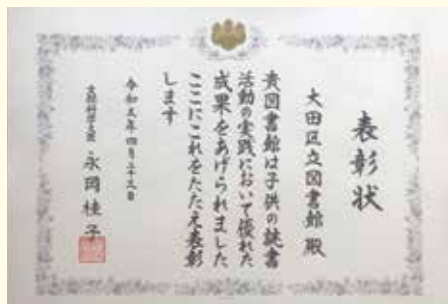 表彰状
大田区立図書館 殿
貴図書館は子供の読書
活動の実践において優れた
成果をあげられました
ここにこれをたたえ表彰
します
令和五年四月二十三日
文部科学大臣 永岡桂子